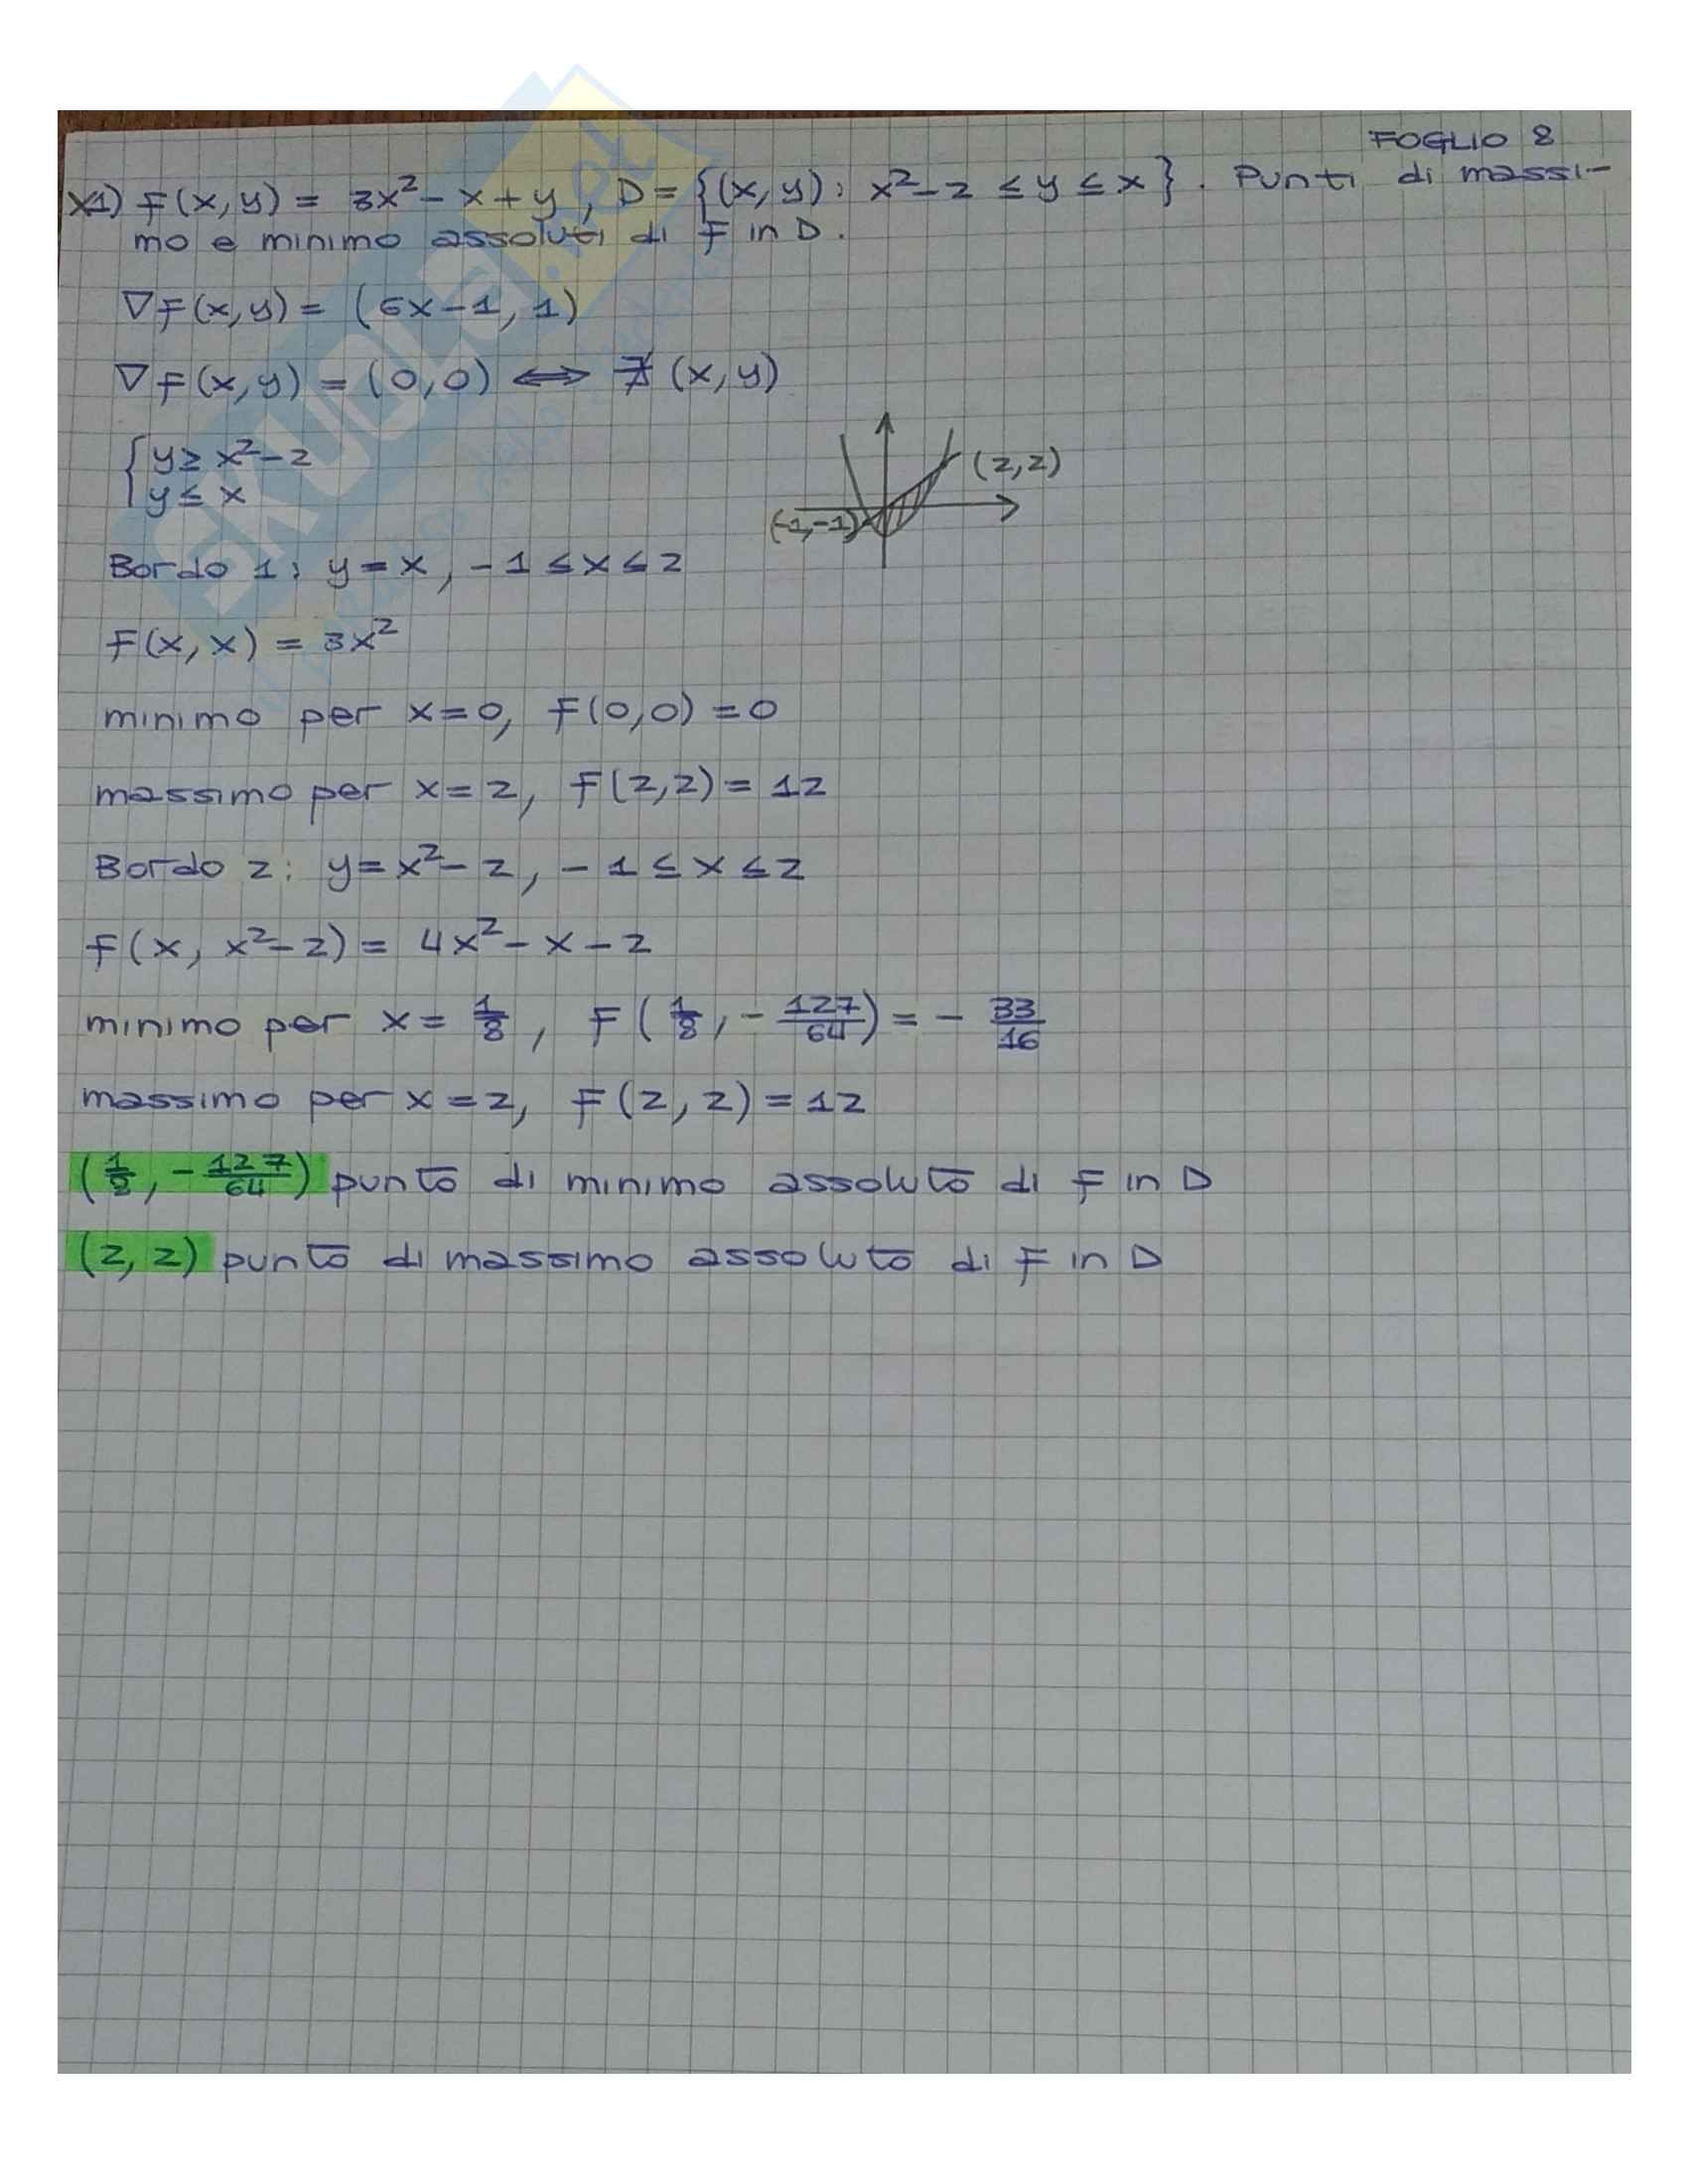 FOGLIO 8
X1) f(x,y) = 3x² - x + y, D = {(x,y): x² - 2 ≤ y ≤ x}. Punti di massi-
mo e minimo assoluti di f in D.
∇f(x,y) = (6x-1, 1)
∇f(x,y) = (0,0) ⟺ ∄ (x,y)
{ y ≥ x² - 2
y ≤ x
(2,2)
(-1,-1)
Bordo 1: y = x, -1 ≤ x ≤ 2
f(x,x) = 3x²
minimo per x=0, f(0,0) = 0
massimo per x=2, f(2,2) = 12
Bordo 2: y = x² - 2, -1 ≤ x ≤ 2
f(x, x²-2) = 4x² - x - 2
minimo per x = 1/8, f(1/8, -127/64) = -33/16
massimo per x=2, f(2,2) = 12
(1/8, -127/64) punto di minimo assoluto di f in D
(2,2) punto di massimo assoluto di f in D
SKUOLA.net